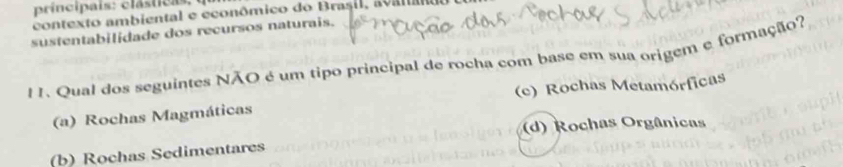 principais: clásticas,
contexto ambiental e econômico do Brasil,
sustentabilidade dos recursos naturais. formação das rochas
11. Qual dos seguintes NÃO é um tipo principal de rocha com base em sua origem e formação?
(a) Rochas Magmáticas
(c) Rochas Metamórficas
(b) Rochas Sedimentares
(d) Rochas Orgânicas